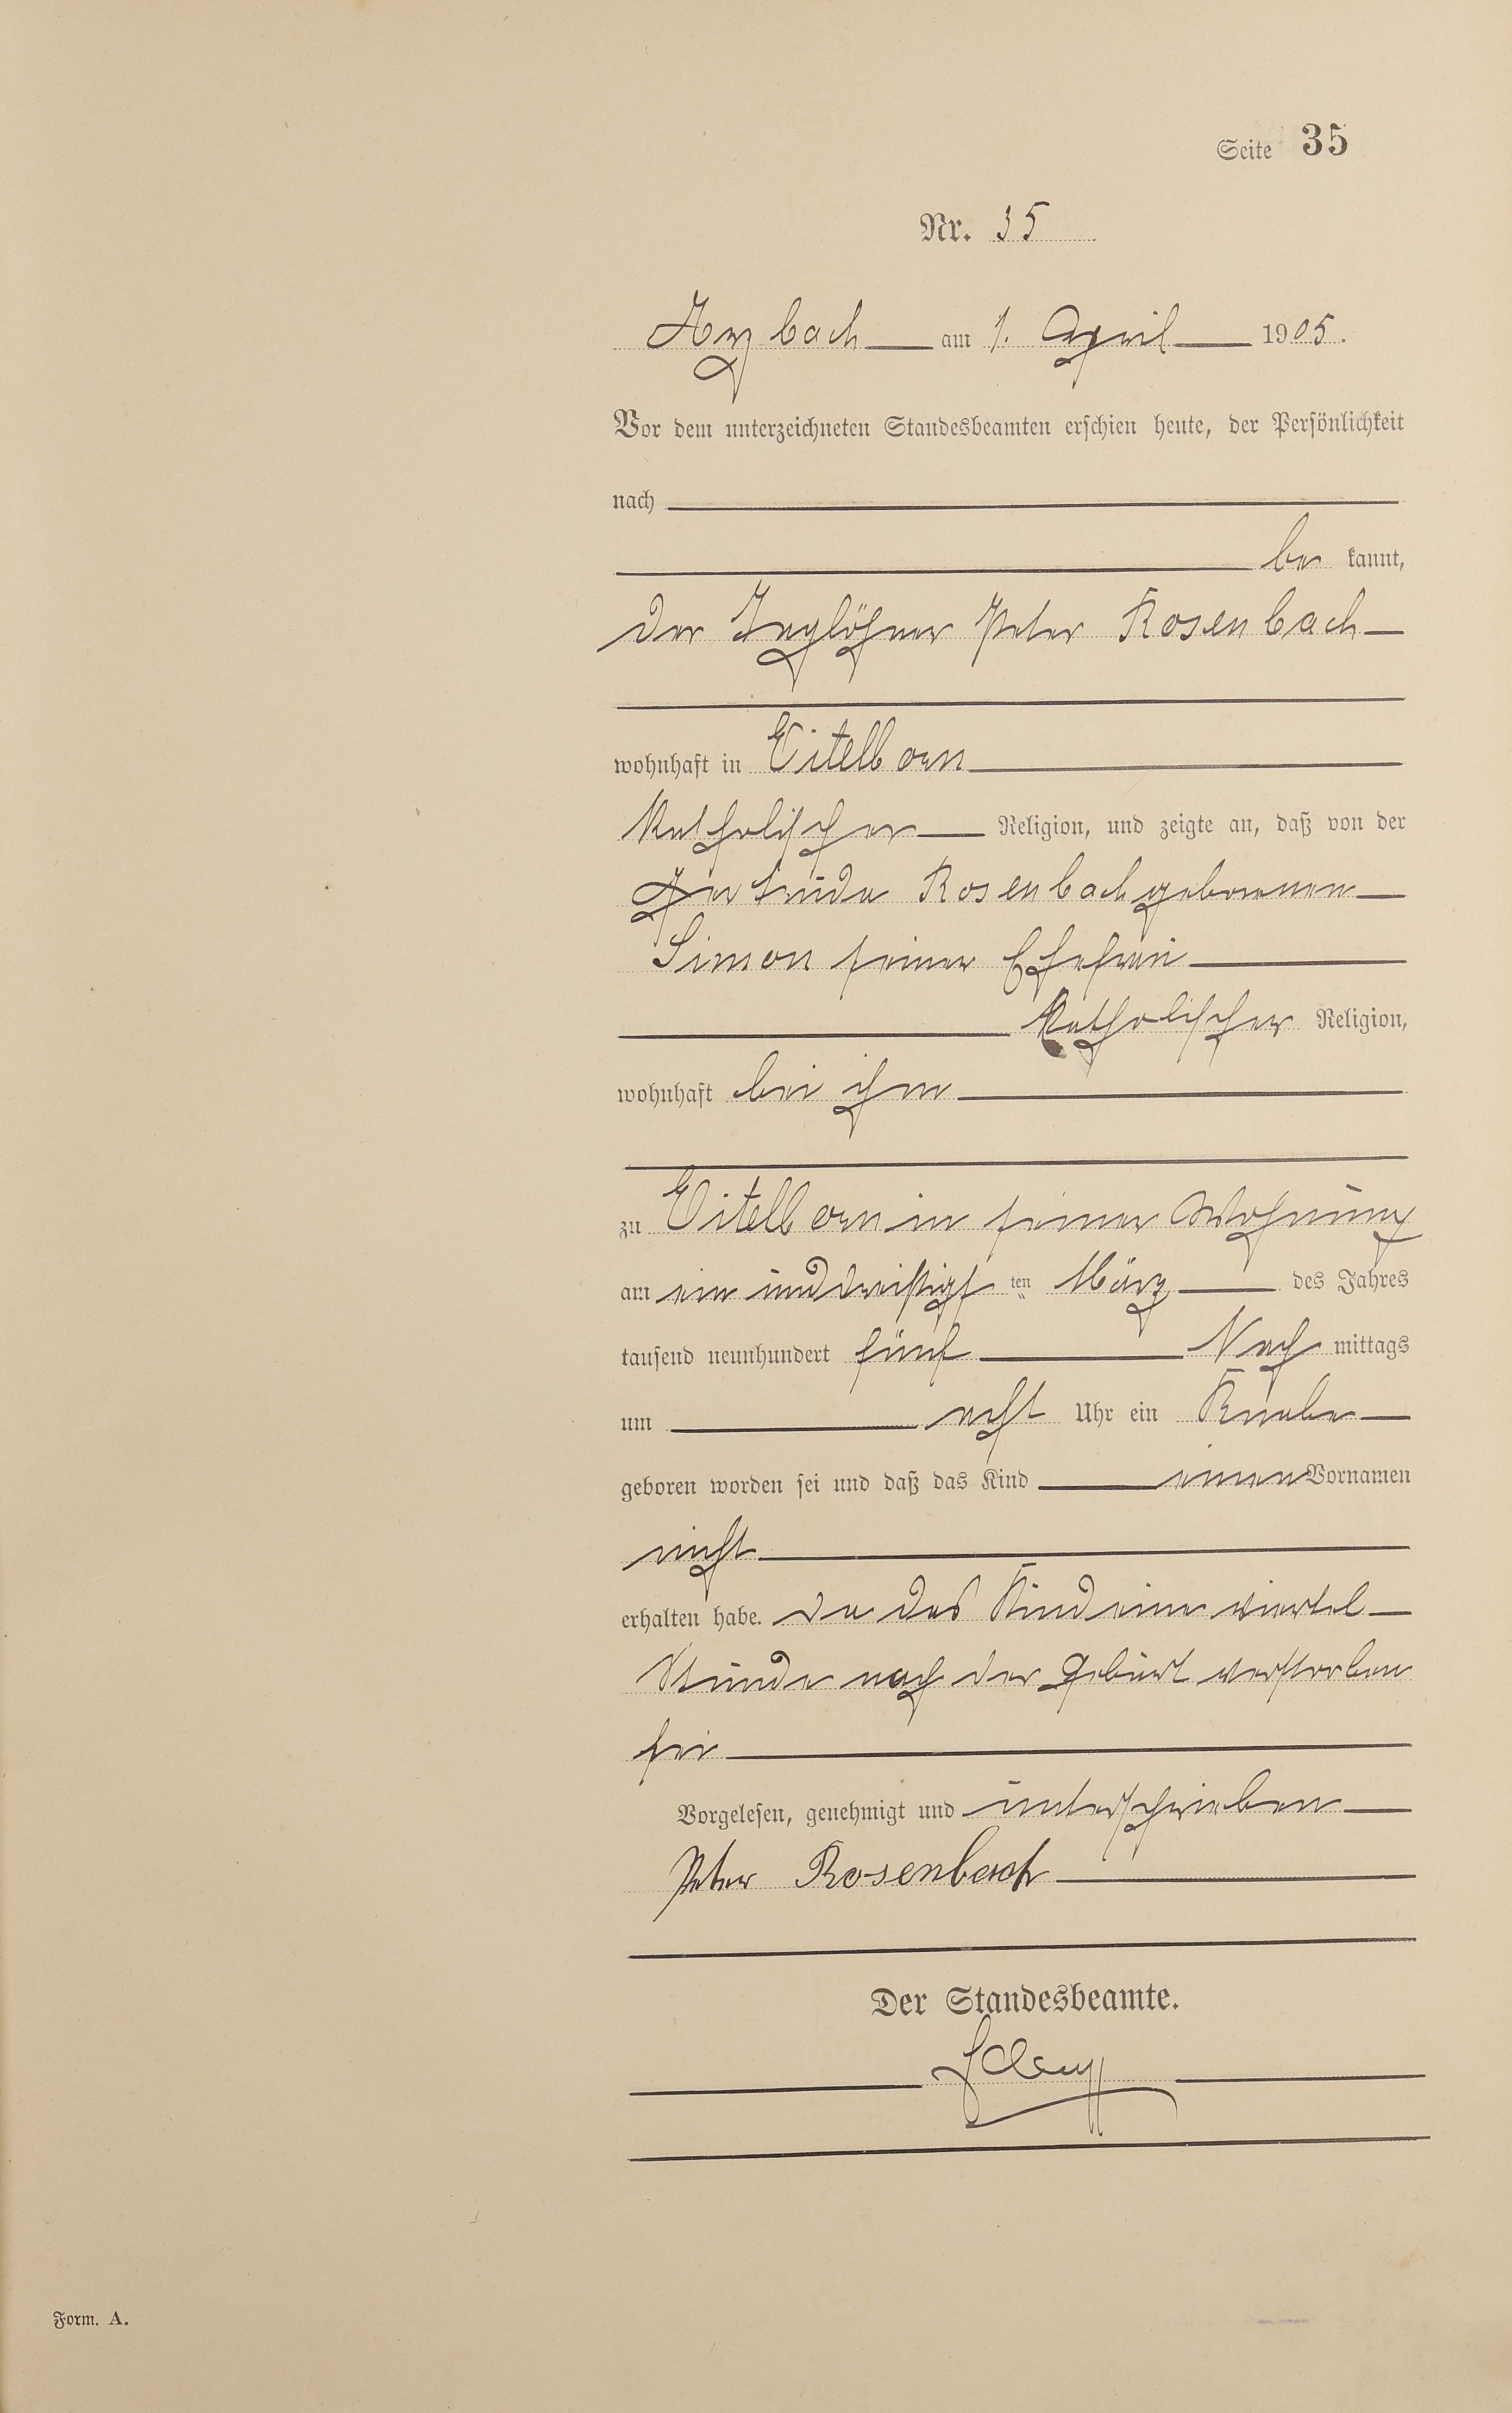 Seite 35
Nr. 35
Arzbach am 1. April 1905.
Vor dem unterzeichneten Standesbeamten erschien heute, der Persönlichkeit
nach
be kannt,
der Taglöhner Peter Rosenbach
wohnhaft in Eitelborn
katholischer Religion, und zeigte an, daß von der
Gertrude Rosenbach geborenen
Simon seiner Ehefrau
katholischer Religion,
wohnhaft bei ihm
zu Eitelborn in seiner Wohnung
am ein und dreißigsten März des Jahres
tausend neunhundert fünf Nach mittags
um acht Uhr ein Knabe
geboren worden sei und daß das Kind einen Vornamen
nicht
erhalten habe. da das Kind eine viertel
Stunde nach der Geburt verstorben
sei
Vorgelesen, genehmigt und unterschrieben
Peter Rosenbach
Der Standesbeamte.
Form. A.